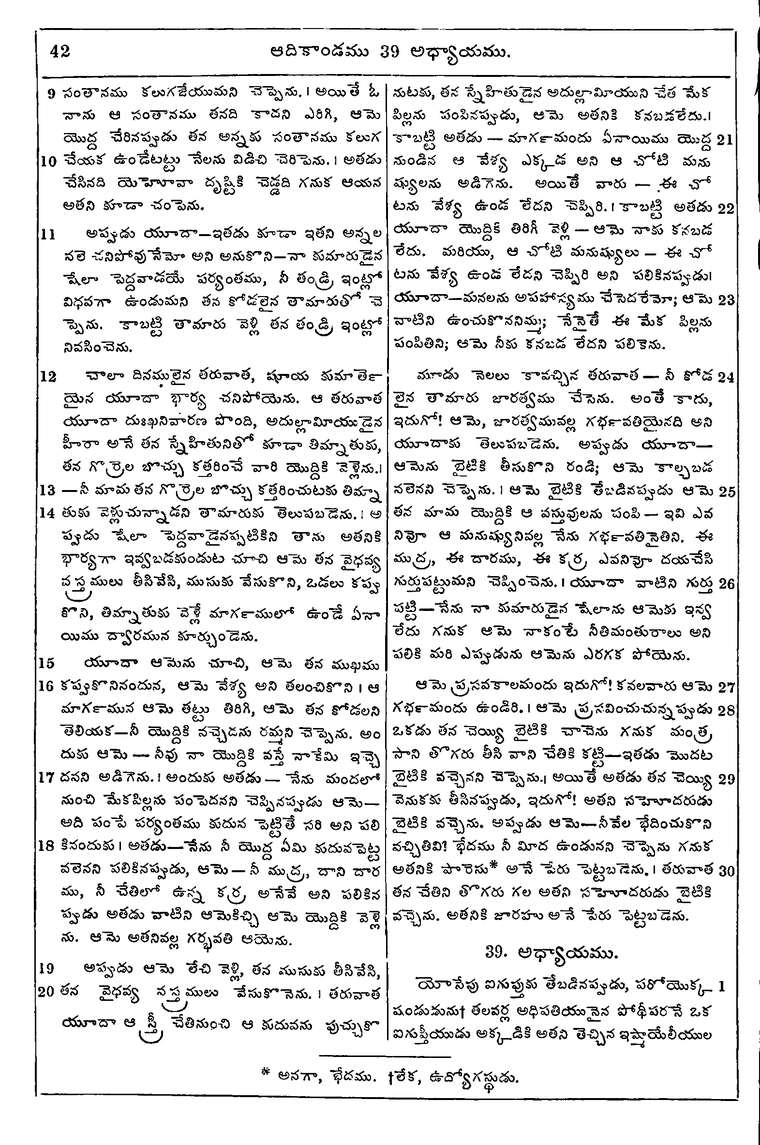 42
ఆదికాండము 39 అధ్యాయము.
9 సంతానము కలుగజేయుమని చెప్పెను. । అయితే ఓ
నాను ఆ సంతానము తనది కాదని ఎరిగి, ఆమె
యొద్ద చేరినప్పుడు తన అన్నకు సంతానము కలుగ
10 చేయక ఉండేటట్టు నేలను విడిచి చెరిపెను. । అతడు
చేసినది యెహోవా దృష్టికి చెడ్డది గనుక ఆయన
అతని కూడా చంపెను.
11 అప్పుడు యూదా—ఇతడు కూడా ఇతని అన్నల
వలె చనిపోవునేమో అని అనుకొని—నా కుమారుడైన
షేలా పెద్దవాడయే పర్యంతము, నీ తండ్రి ఇంట్లో
విధవగా ఉండుమని తన కోడలైన తామారుతో చె
ప్పెను. కాబట్టి తామారు వెళ్లి తన తండ్రి ఇంట్లో
నివసించెను.
12 చాలా దినములైన తరువాత, షూయ కుమార్తె
యైన యూదా భార్య చనిపోయెను. ఆ తరువాత
యూదా దుఃఖనివారణ పొంది, అదుల్లామీయుడైన
హీరా అనే తన స్నేహితునితో కూడా తిమ్నాతుకు,
తన గొర్రెల బొచ్చు కత్తరించే వారి యొద్దికి వెళ్లెను. ।
13 —నీ మామ తన గొర్రెల బొచ్చు కత్తరించుటకు తిమ్నా
14 తుకు వెళ్లుచున్నాడని తామారుకు తెలుపబడెను. । అ
ప్పుడు షేలా పెద్దవాడైనప్పటికిని తాను అతనికి
భార్యగా ఇవ్వబడకుండుట చూచి ఆమె తన వైధవ్య
వస్త్రములు తీసివేసి, ముసుకు వేసుకొని, ఒడలు కప్పు
కొని, తిమ్నాతుకు వెళ్లే మార్గములో ఉండే ఏనా
యిము ద్వారమున కూర్చుండెను.
15 యూదా ఆమెను చూచి, ఆమె తన ముఖము
16 కప్పుకొనినందున, ఆమె వేశ్య అని తలంచికొని । ఆ
మార్గమున ఆమె తట్టు తిరిగి, ఆమె తన కోడలని
తెలియక—నీ యొద్దికి వచ్చెదను రమ్మని చెప్పెను. అం
దుకు ఆమె—నీవు నా యొద్దికి వస్తే నాకేమి ఇచ్చె
17 దవని అడిగెను. । అందుకు అతడు—నేను మందలో
నుంచి మేకపిల్లను పంపెదనని చెప్పినప్పుడు ఆమె—
అది పంపే పర్యంతము కుదువ పెట్టితే సరి అని పలి
18 కినందుకు । అతడు—నేను నీ యొద్ద ఏమి కుదువపెట్ట
వలెనని పలికినప్పుడు, ఆమె—నీ ముద్ర, దాని దార
ము, నీ చేతిలో ఉన్న కర్ర అనేవే అని పలికిన
ప్పుడు అతడు వాటిని ఆమెకిచ్చి ఆమె యొద్దికి వెళ్లె
ను. ఆమె అతనివల్ల గర్భవతి ఆయెను.
19 అప్పుడు ఆమె లేచి వెళ్లి, తన ముసుకు తీసివేసి,
20 తన వైధవ్య వస్త్రములు వేసుకొనెను. । తరువాత
యూదా ఆ స్త్రీ చేతినుంచి ఆ కుదువను పుచ్చుకొ
నుటకు, తన స్నేహితుడైన అదుల్లామీయుని చేత మేక
పిల్లను పంపినప్పుడు, ఆమె అతనికి కనబడలేదు. ।
కాబట్టి అతడు—మార్గమందు ఏనాయిము యొద్ద 21
నుండిన ఆ వేశ్య ఎక్కడ అని ఆ చోటి మను
ష్యులను అడిగెను. అయితే వారు—ఈ చో
టను వేశ్య ఉండ లేదని చెప్పిరి. । కాబట్టి అతడు 22
యూదా యొద్దికి తిరిగీ వెళ్లి—ఆమె నాకు కనబడ
లేదు. మరియు, ఆ చోటి మనుష్యులు—ఈ చో
టను వేశ్య ఉండ లేదని చెప్పిరి అని పలికినప్పుడు।
యూదా—మనలను అపహాస్యము చేసెదరేమో; ఆమె 23
వాటిని ఉంచుకొననిమ్ము; నేనైతే ఈ మేక పిల్లను
పంపితిని; ఆమె నీకు కనబడ లేదని పలికెను.
మూడు నెలలు కావచ్చిన తరువాత—నీ కోడ 24
లైన తామారు జారత్వము చేసెను. అంతే కాదు,
ఇదుగో! ఆమె, జారత్వమువల్ల గర్భవతియైనది అని
యూదాకు తెలుపబడెను. అప్పుడు యూదా—
ఆమెను బైటికి తీసుకొని రండి; ఆమె కాల్చబడ
వలెనని చెప్పెను. । ఆమె బైటికి తేబడినప్పుడు ఆమె 25
తన మామ యొద్దికి ఆ వస్తువులను పంపి—ఇవి ఎవ
నివో ఆ మనుష్యునివల్ల నేను గర్భవతినైతిని. ఈ
ముద్ర, ఈ దారము, ఈ కర్ర, ఎవనివో దయచేసి
గుర్తుపట్టుమని చెప్పించెను. । యూదా వాటిని గుర్తు 26
పట్టి—నేను నా కుమారుడైన షేలాను ఆమెకు ఇవ్వ
లేదు గనుక ఆమె నాకంటే నీతిమంతురాలు అని
పలికి మరి ఎప్పుడును ఆమెను ఎరగక పోయెను.
ఆమె ప్రసవకాలమందు ఇదుగో! కవలవారు ఆమె 27
గర్భమందు ఉండిరి. । ఆమె ప్రసవించుచున్నప్పుడు 28
ఒకడు తన చెయ్యి బైటికి చాచెను గనుక మంత్ర
సాని తొగరు తీసి వాని చేతికి కట్టి—ఇతడు మొదట
బైటికి వచ్చెనని చెప్పెను. । అయితే అతడు తన చెయ్యి 29
వెనుకకు తీసినప్పుడు, ఇదుగో! అతని సహోదరుడు
బైటికి వచ్చెను. అప్పుడు ఆమె—నీవేల భేదించుకొని
వచ్చితివి! భేదము నీ మీద ఉండునని చెప్పెను గనుక
అతనికి పారెసు* అనే పేరు పెట్టబడెను. । తరువాత 30
తన చేతిని తొగరు గల అతని సహోదరుడు బైటికి
వచ్చెను. అతనికి జారహు అనే పేరు పెట్టబడెను.
39. అధ్యాయము.
యోసేపు ఐగుప్తుకు తేబడినప్పుడు, ఫరోయొక్క 1
షండుడును† తలవర్ల అధిపతియునైన పోథీఫరనే ఒక
ఐగుప్తీయుడు అక్కడికి అతని తెచ్చిన ఇష్మాయేలీయుల
* అనగా, భేదము. †లేక, ఉద్యోగస్థుడు.